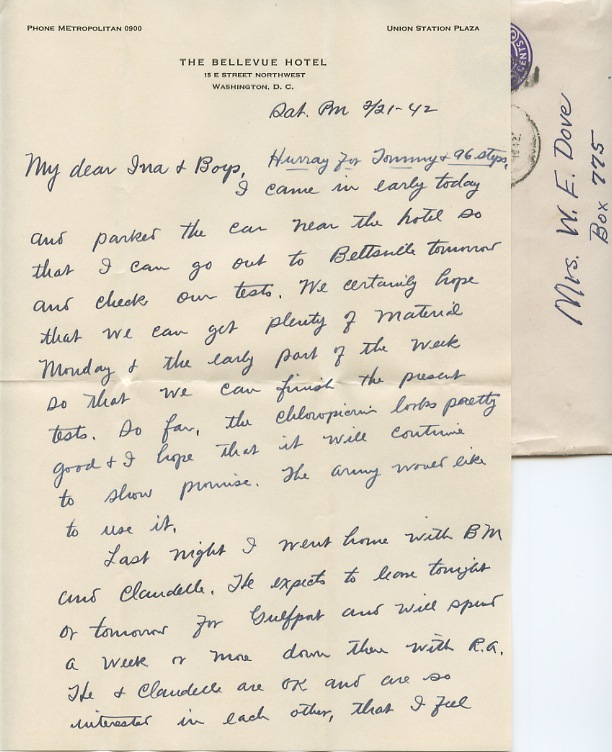 PHONE METROPOLITAN 0900
UNION STATION PLAZA
THE BELLEVUE HOTEL
15 E STREET NORTHWEST
WASHINGTON, D. C.
Sat. PM 2/21-42
My dear Ina & Boys, Hurray for Tommy & 96 steps.
I came in early today
and parked the car near the hotel so
that I can go out to Beltsville tomorrow
and check our tests. We certainly hope
that we can get plenty of material
Monday & the early part of the week
so that we can finish the present
tests. So far, the chloropicrin looks pretty
good & I hope that it will continue
to show promise. The army would like
to use it.
Last night I went home with BM
and Claudelle. He expects to leave tonight
or tomorrow for Gulfport and will spend
a week or more down there with R.A.
He & Claudelle are OK and are so
interested in each other, that I feel
CENTS
Mrs. W. E. Dove
Box 775